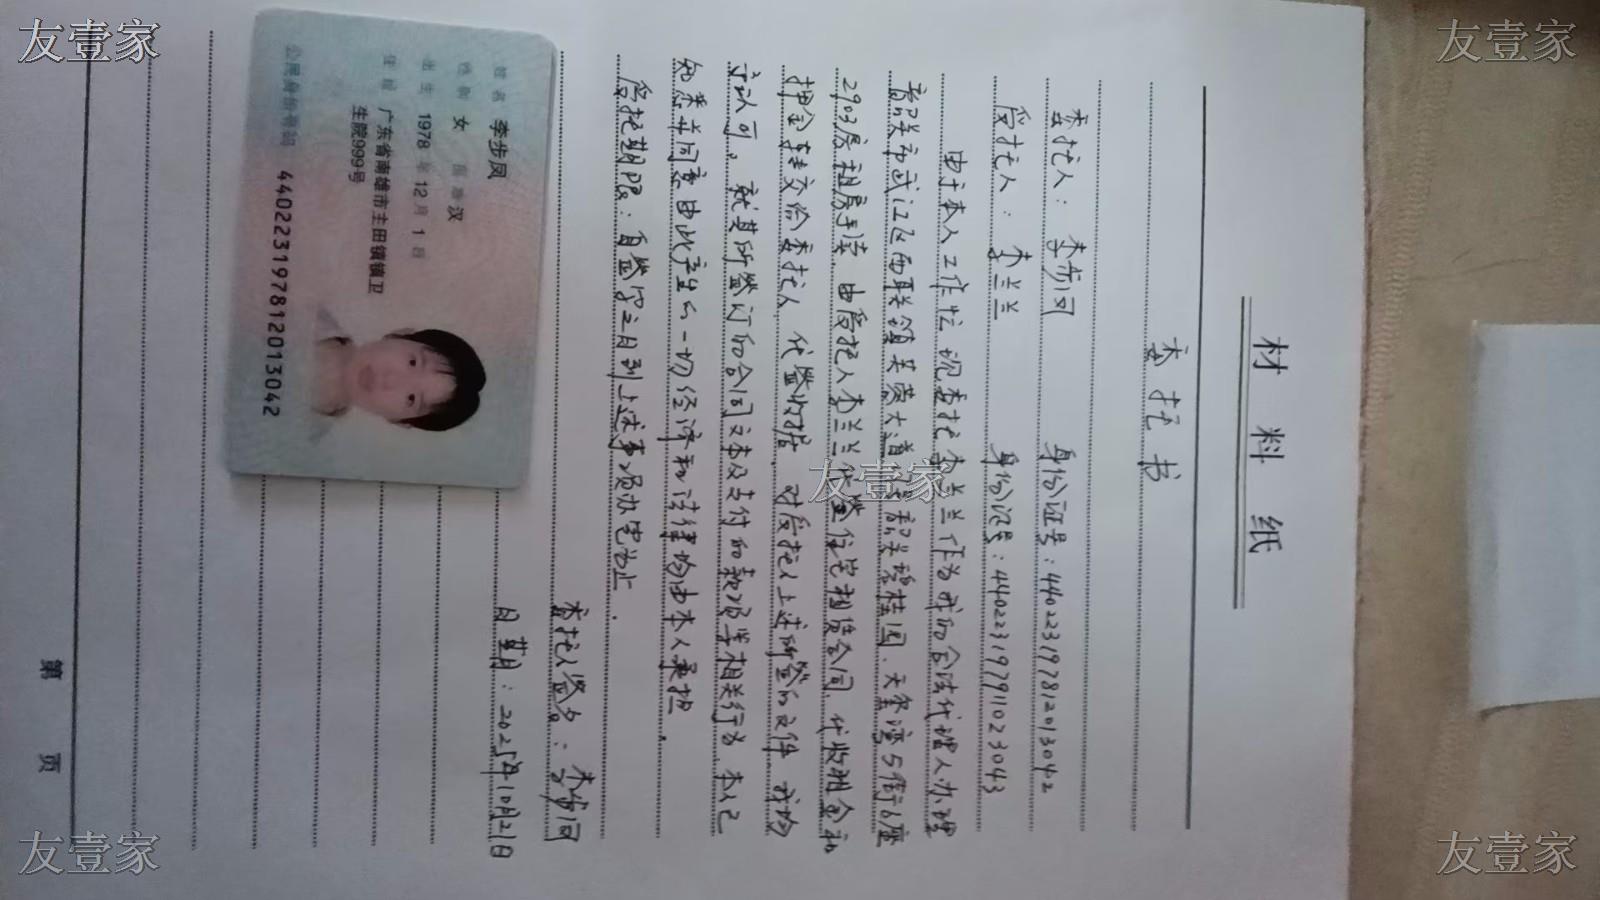 材料纸
委托书
委托人：李步凤 身份证号：440223197812013042
受托人：李兰兰 身份证号：440223197911023043
由于本人工作忙 现委托李兰兰作为我的合法代理人办理
韶关市武江区西联镇芙蓉大道 韶关碧桂园.天玺湾5街6座
2903房租房手续 由受托人李兰兰代签住宅租赁合同 代收租金和
押金 转交给委托人 代签收据 对受托人上述所签的文件 我均
予认可。就其所签订的合同文本及支付的款项等相关行为 本人已
知悉并同意 由此产生的一切经济和法律均由本人承担.
委托期限：自签字之日到上述事项办完为止.
委托人签名：李步凤
日期：2025年10月21日
第 页
姓名 李步凤
性别 女 民族 汉
出生 1978年12月1日
住址 广东省南雄市主田镇镇卫
生院999号
公民身份号码 440223197812013042
友壹家
友壹家
友壹家
友壹家
友壹家